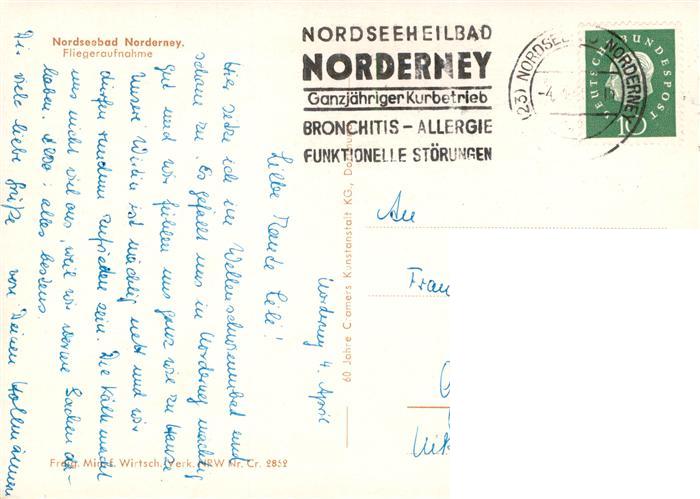 Nordseebad Norderney.
Fliegeraufnahme
NORDSEEHEILBAD
NORDERNEY
Ganzjähriger Kurbetrieb
BRONCHITIS – ALLERGIE
FUNKTIONELLE STÖRUNGEN
(23) NORDSEEBAD NORDERNEY
-4.
DEUTSCHE BUNDESPOST
10
Norderney 4. April
Liebe Tante Lili!
Hier sitze ich im Wellenschwimmbad und
schaue zu. Es gefällt uns in Norderney mächtig
gut und wir fühlen uns ganz wie zu Hause
Unsere Wirtin ist mächtig nett und wir
dürfen rundum zufrieden sein. Die Kälte macht
uns nicht viel aus, weil wir warme Sachen da-
haben. Also: alles bestens.
Dir viele liebe Grüße von Deinen
An
Frau
60 Jahre Cramers Kunstanstalt KG, Dortmund
Freig. Min. f. Wirtsch. u. Verk. NRW Nr. Cr. 2852